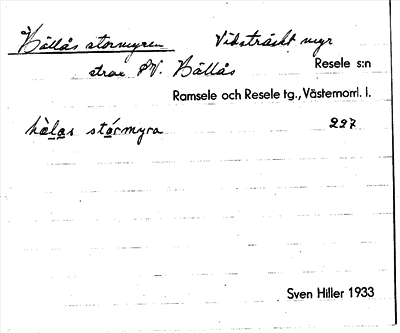 Bällås stormyren Vidsträckt myr
strax NV. Bällås Resele s:n
Ramsele och Resele tg., Västernorrl. l.
bä̀las stórmyra 227
Sven Hiller 1933